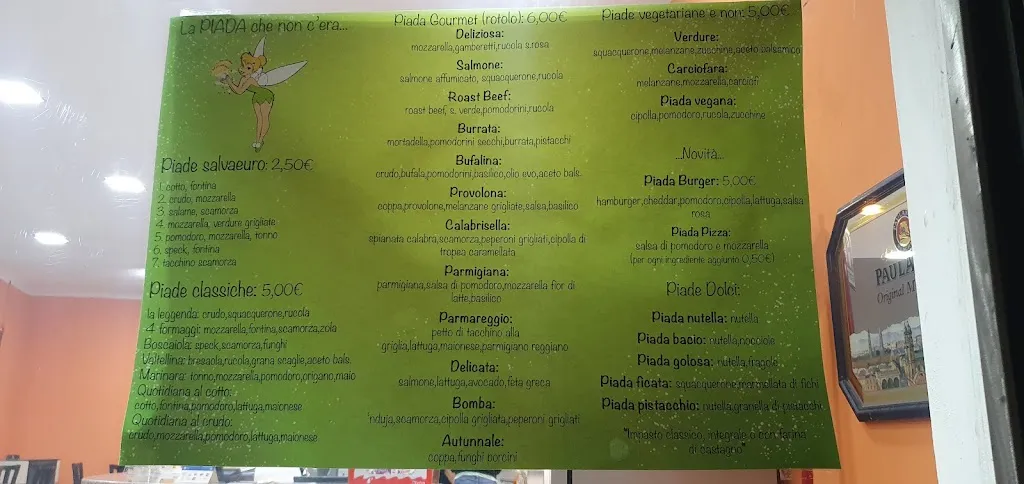 La PIADA che non c'era...
Piade salvaeuro: 2,50€
1. cotto, fontina
2. crudo, mozzarella
3. salame, scamorza
4. mozzarella, verdure grigliate
5. pomodoro, mozzarella, tonno
6. speck, fontina
7. tacchino scamorza
Piade classiche: 5,00€
la leggenda: crudo,squacquerone,rucola
4 formaggi: mozzarella,fontina,scamorza,zola
Boscaiola: speck,scamorza,funghi
Valtellina: bresaola,rucola,grana scaglie,aceto bals.
Marinara: tonno,mozzarella,pomodoro,origano,maio
Quotidiana al cotto:
cotto,fontina,pomodoro,lattuga,maionese
Quotidiana al crudo:
crudo,mozzarella,pomodoro,lattuga,maionese
Piada Gourmet (rotolo): 6,00€
Deliziosa:
mozzarella,gamberetti,rucola s.rosa
Salmone:
salmone affumicato, squacquerone,rucola
Roast Beef:
roast beef, s. verde,pomodorini,rucola
Burrata:
mortadella,pomodorini secchi,burrata,pistacchi
Bufalina:
crudo,bufala,pomodorini,basilico,olio evo,aceto bals.
Provolona:
coppa,provolone,melanzane grigliate,salsa,basilico
Calabrisella:
spianata calabra,scamorza,peperoni grigliati,cipolla di
tropea caramellata
Parmigiana:
parmigiana,salsa di pomodoro,mozzarella fior di
latte,basilico
Parmareggio:
petto di tacchino alla
griglia,lattuga,maionese,parmigiano reggiano
Delicata:
salmone,lattuga,avocado,feta greca
Bomba:
'nduja,scamorza,cipolla grigliata,peperoni grigliati
Autunnale:
coppa,funghi porcini
Piade vegetariane e non: 5,00€
Verdure:
squacquerone,melanzane,zucchine,aceto balsamico
Carciofara:
melanzane,mozzarella,carciofi
Piada vegana:
cipolla,pomodoro,rucola,zucchine
...Novità...
Piada Burger: 5,00€
hamburger,cheddar,pomodoro,cipolla,lattuga,salsa
rosa
Piada Pizza:
salsa di pomodoro e mozzarella
(per ogni ingrediente aggiunto 0,50€)
Piade Dolci:
Piada nutella: nutella
Piada bacio: nutella,nocciole
Piada golosa: nutella,fragole
Piada ficata: squacquerone,marmellata di fichi
Piada pistacchio: nutella,granella di pistacchi
"Impasto classico, integrale o con farina
di castagno"
PAULA
Original M